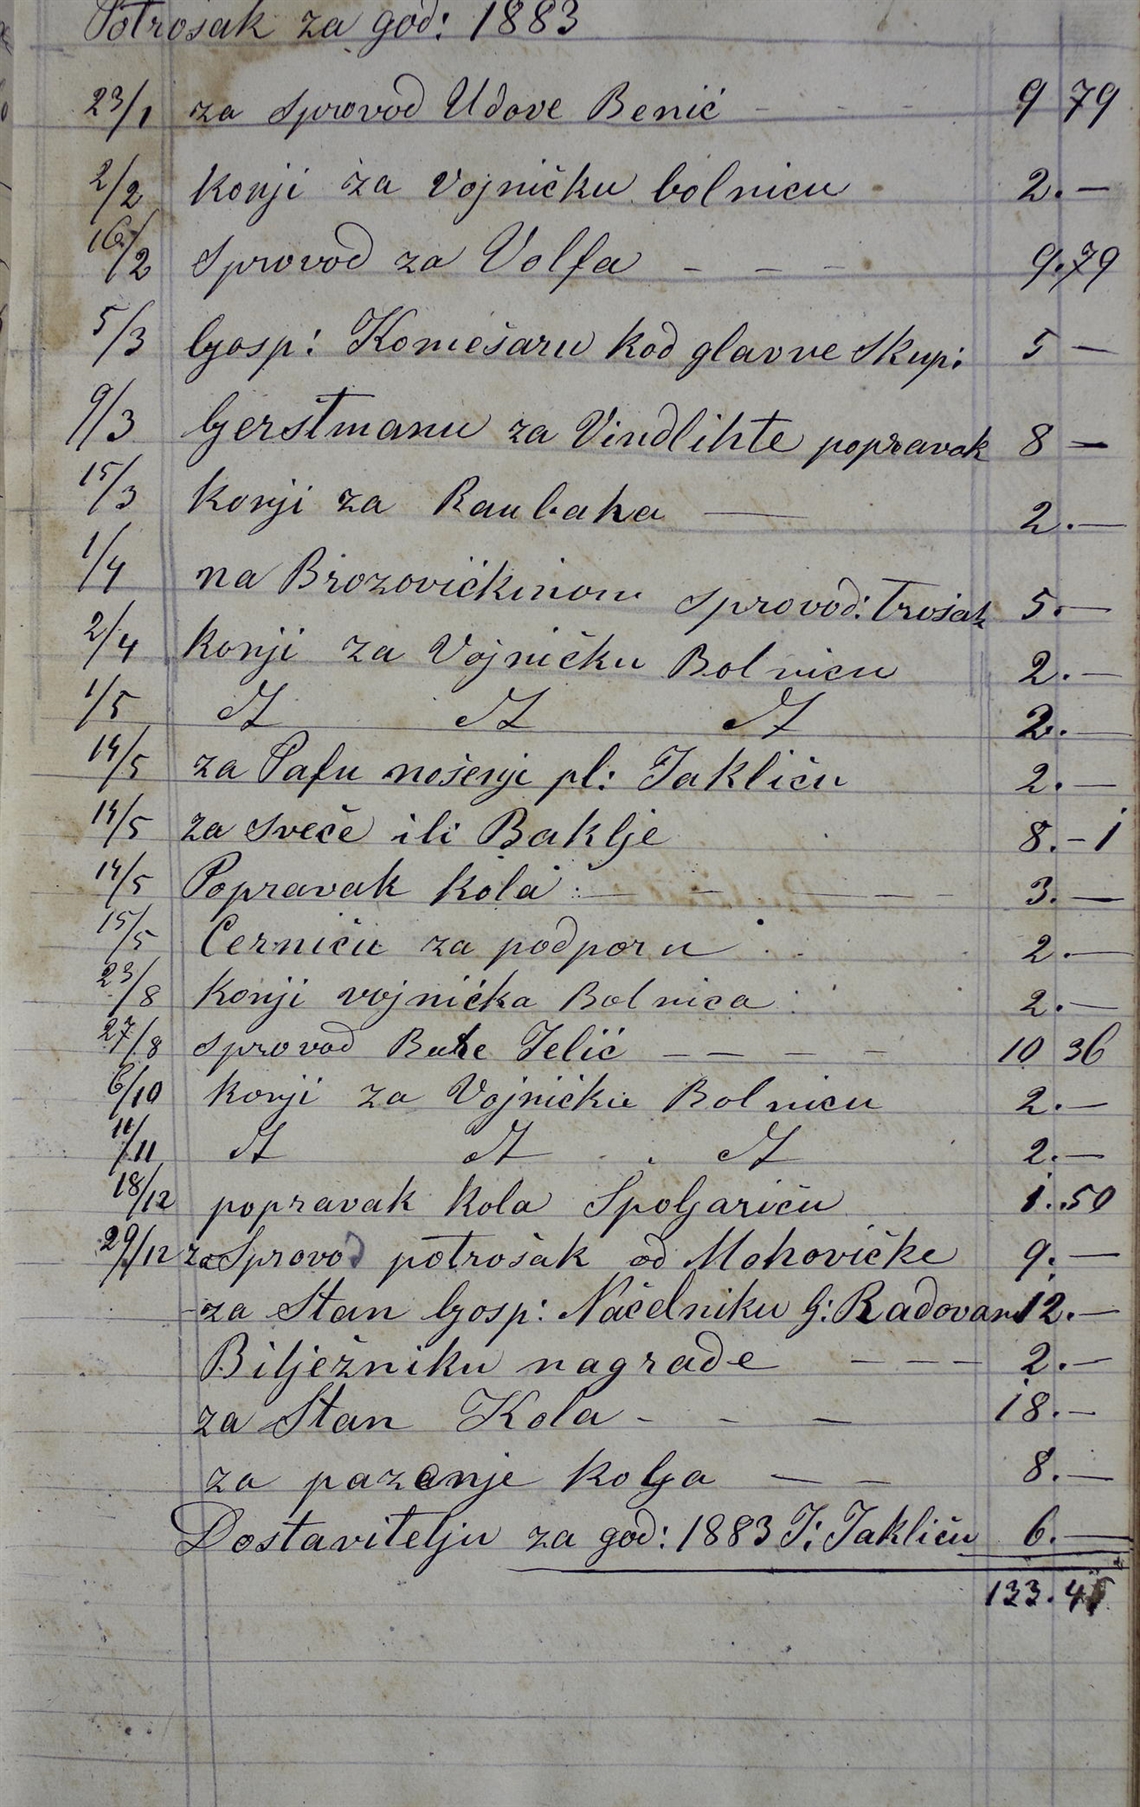 Potrošak za god: 1883
23/1 za Sprovod Udove Benić - - - 9 79
2/2 Konji za Vojničku bolnicu 2.—
16/2 Sprovod za Volfa - - - 9.79
5/3 Gosp: Komešaru kod glavne Skup: 5 —
9/3 Gerštmanu za Vindlihte popravak 8 —
15/3 Konji za Raubaha — 2.—
1/4 na Brozovićkinom Sprovod: Trošak 5.—
2/4 Konji za Vojničku Bolnicu 2.—
1/5 2.—
14/5 za Pafu nošenje pl: Jakliću 2.—
14/5 za Sveče ili Baklje 8.—
14/5 Popravak Kola — - — — 3.—
15/5 Cerniću za podporu 2.—
23/8 Konji vojnička Bolnica 2.—
27/8 Sprovod Jelić — — — — 10 36
6/10 Konji za Vojničku Bolnicu 2.—
2.—
18/12 popravak Kola Špoljariću 1.50
29/12 za Sprovod potrošak od Mohovičke 9.—
za Stan Gosp: Načelniku G: Radovan 12.—
Bilježniku nagrade — — — 2.—
za Stan Kola - - — 18.—
za pazenje kolja — — 8.—
Dostavitelju za god: 1883 J: Jakliću 6.—